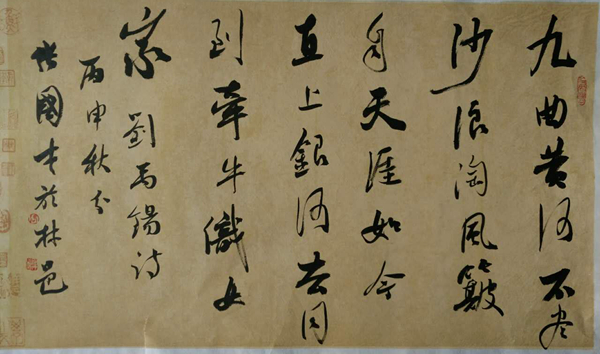 九曲黄河不尽
沙浪淘風簸
自天涯如今
直上銀河去同
到牽牛織女
家 劉禹錫诗
丙申秋分
張國书於林邑